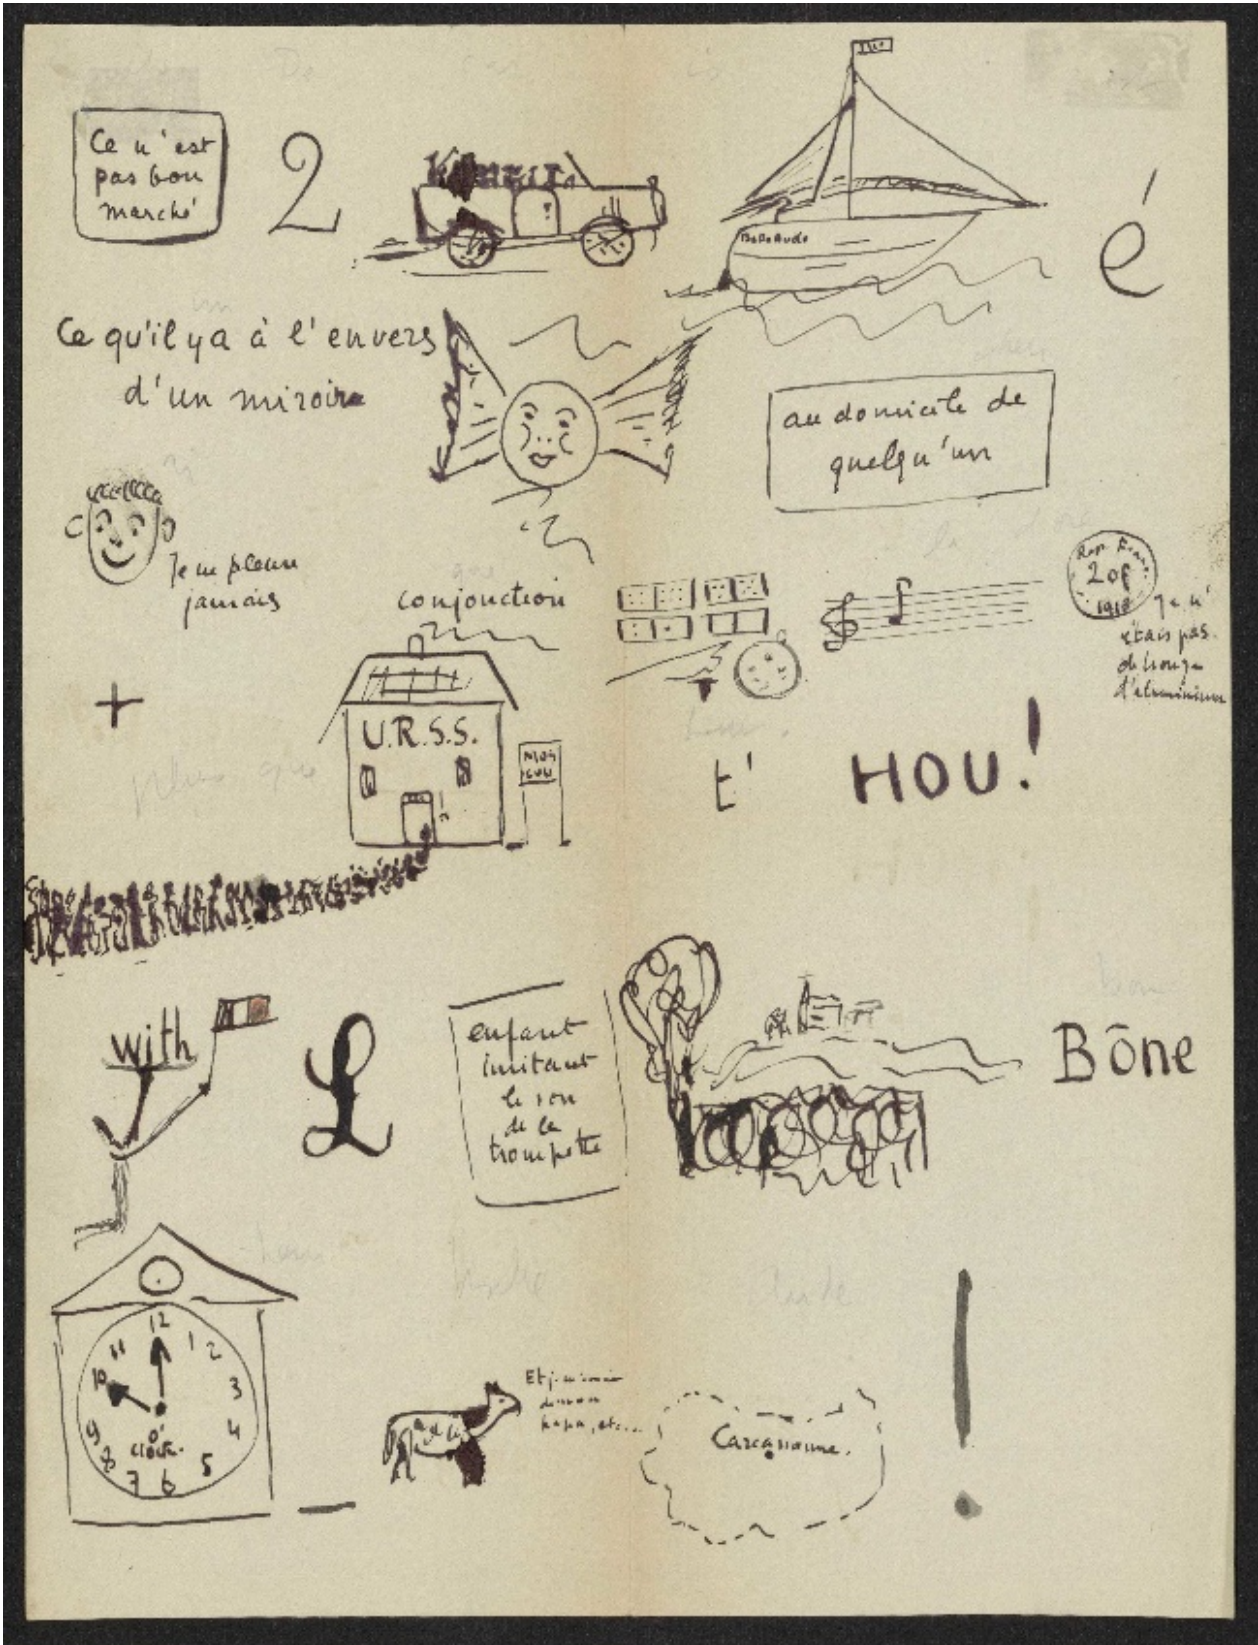 Ce n'est
pas bon
marché
2
é
Ce qu'il y a à l'envers
d'un miroire
au domicile de
quelqu'un
Je ne pleure
jamais
conjonction
Rep. Franc.
20f
1910
Je n'
étais pas
de bronze
d'aluminium
+
U.R.S.S.
MOS
COU
t'
HOU!
plus que
with
£
enfant
imitant
le son
de la
trompette
Bône
12
11
1
10
2
3
9
4
8
5
7
6
O'
clock.
Et je
papa, etc...
Carcassonne.
!